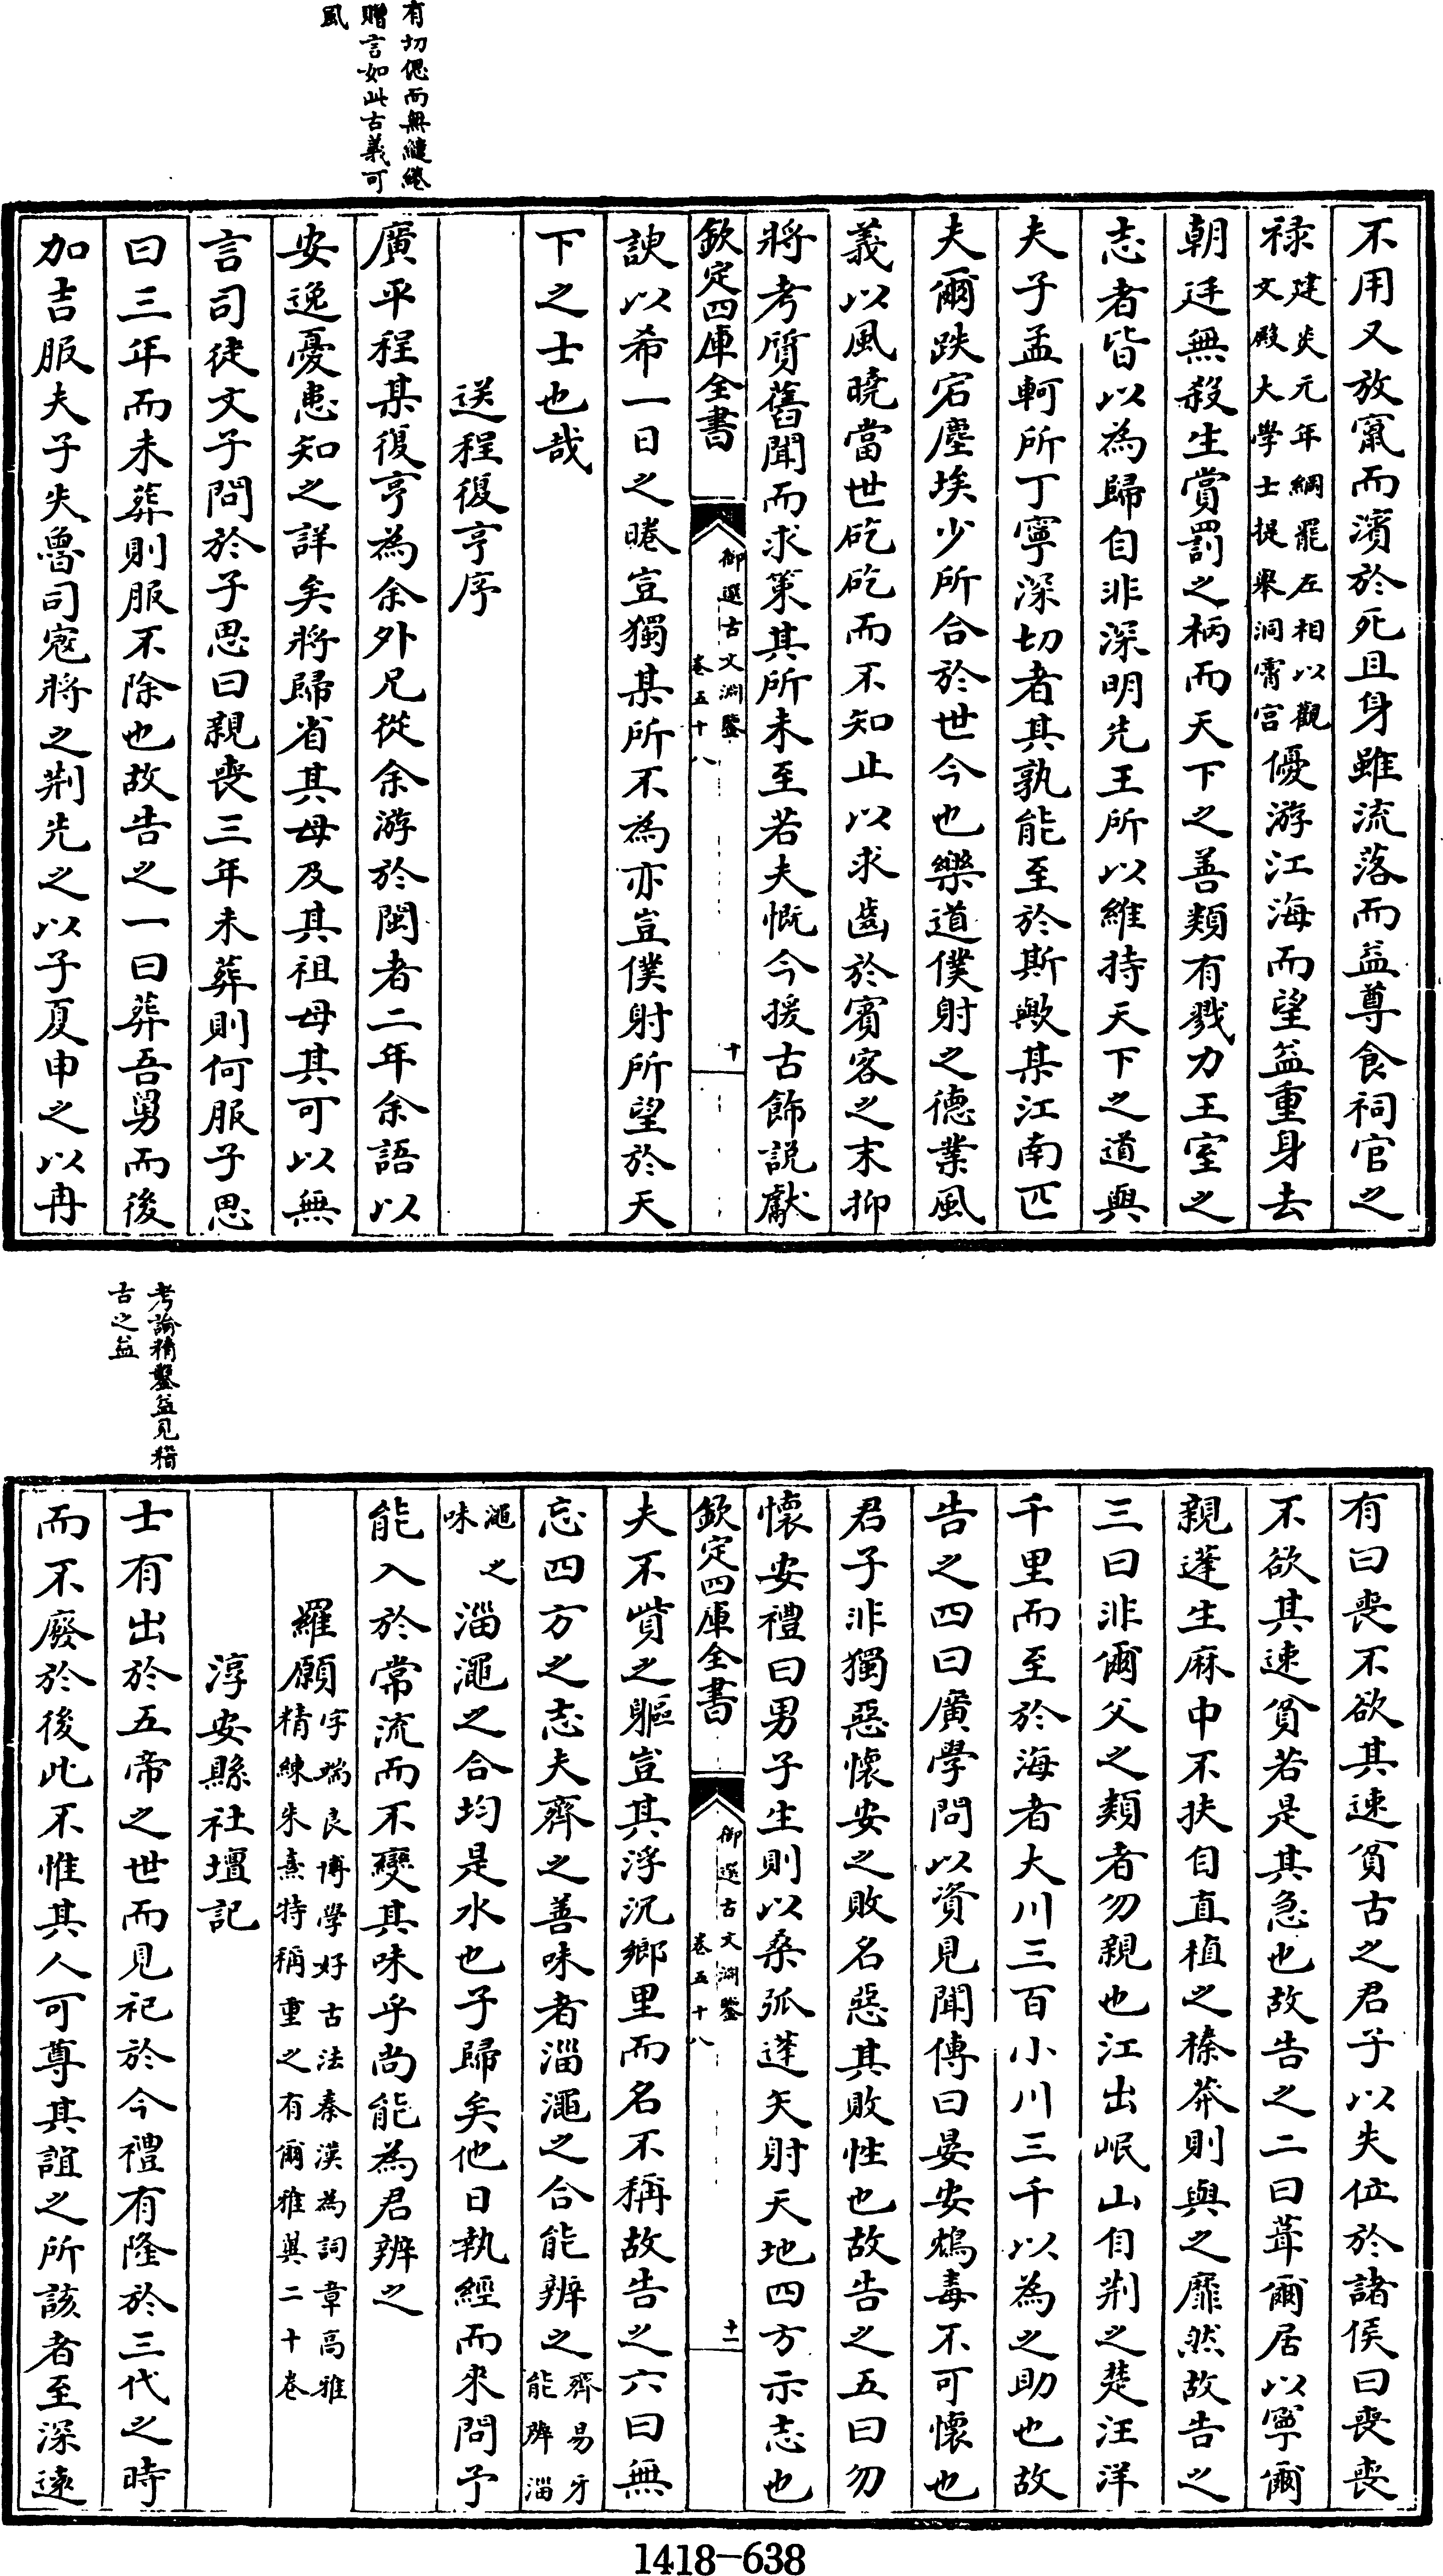 有切偲而無繾綣
贈言如此古義可
風
不用又放竄而濱於死且身雖流落而益尊食祠官之
祿建炎元年綱罷左相以觀文殿大學士提舉洞霄宮優游江海而望益重身去
朝廷無殺生賞罰之柄而天下之善類有戮力王室之
志者皆以為歸自非深明先王所以維持天下之道與
夫子孟軻所丁寧深切者其孰能至於斯歟某江南匹
夫爾跌宕塵埃少所合於世今也樂道僕射之德業風
義以風曉當世矻矻而不知止以求齒於賓客之末抑
將考質舊聞而求策其所未至若夫慨今援古飾説獻
欽定四庫全書
御選古文淵鑒
卷五十八
十
諛以希一日之睠豈獨某所不為亦豈僕射所望於天
下之士也哉
送程復亨序
廣平程某復亨為余外兄從余游於閩者二年余語以
安逸憂患知之詳矣將歸省其母及其祖母其可以無
言司徒文子問於子思曰親喪三年未葬則何服子思
曰三年而未葬則服不除也故告之一曰葬吾舅而後
加吉服夫子失魯司寇將之荆先之以子夏申之以冉
考論精鑿益見稽
古之益
有曰喪不欲其速貧古之君子以失位於諸侯曰喪喪
不欲其速貧若是其急也故告之二曰葺爾居以寧爾
親蓬生麻中不扶自直植之榛莽則與之靡然故告之
三曰非爾父之類者勿親也江出岷山自荆之楚汪洋
千里而至於海者大川三百小川三千以為之助也故
告之四曰廣學問以資見聞傳曰晏安鴆毒不可懷也
君子非獨惡懷安之敗名惡其敗性也故告之五曰勿
懷安禮曰男子生則以桑弧蓬矢射天地四方示志也
欽定四庫全書
御選古文淵鑒
卷五十八
十一
夫不貲之軀豈其浮沉鄉里而名不稱故告之六曰無
忘四方之志夫齊之善味者淄澠之合能辨之齊易牙能辨淄
澠之味淄澠之合均是水也子歸矣他日執經而來問予
能入於常流而不變其味乎尚能為君辨之
羅願字端良博學好古法秦漢為詞章高雅精練朱熹特稱重之有爾雅異二十卷
淳安縣社壇記
士有出於五帝之世而見祀於今禮有隆於三代之時
而不廢於後此不惟其人可尊其誼之所該者至深遠
1418-638